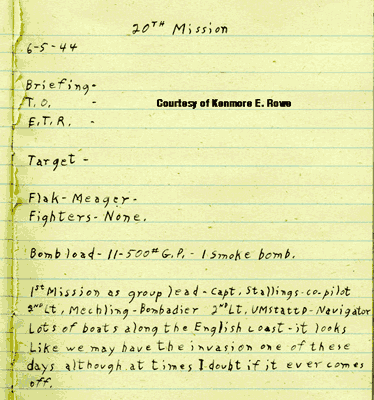 20TH Mission
6-5-44
Briefing-
T.O. - Courtesy of Kenmore E. Rowe
E.T.R. -
Target -
Flak-Meager-
Fighters-None.
Bombload-11-500# G.P. - 1 smoke bomb.
1st Mission as group lead-Capt, Stallings-co-pilot
2ND Lt, Mechling-Bombadier 2ND Lt, UMstattD-Navigator
Lots of boats along the English coast-it looks
Like we may have the invasion one of these
days although at times I doubt if it ever comes
off.